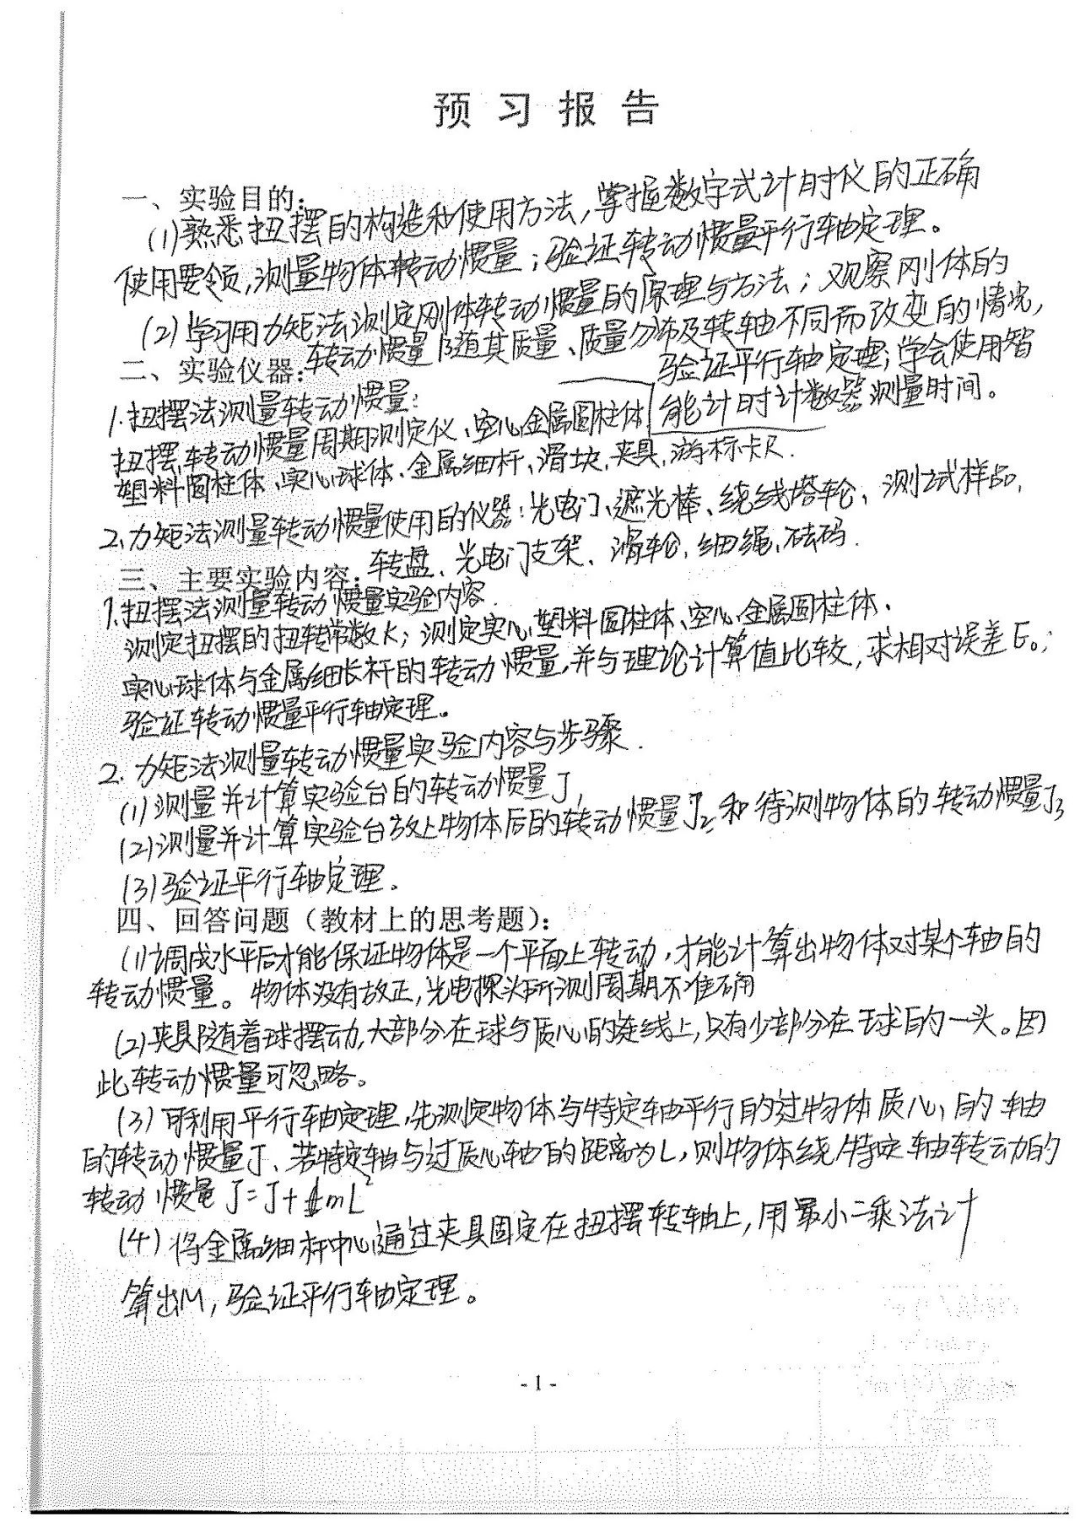 预习报告
一、实验目的:
(1)熟悉扭摆的构造和使用方法,掌握数字式计时仪的正确
使用要领,测量物体转动惯量;验证转动惯量平行轴定理。
(2)学习用力矩法测定刚体转动惯量的原理与方法;观察刚体的
转动惯量随其质量、质量分布及转轴不同而改变的情况,
验证平行轴定理;学会使用智
能计时计数器测量时间。
二、实验仪器:
1.扭摆法测量转动惯量:
扭摆,转动惯量周期测定仪、空心金属圆柱体
塑料圆柱体、实心球体、金属细杆、滑块,夹具,游标卡尺.
2、力矩法测量转动惯量使用的仪器:光电门、遮光棒、绕线塔轮、测试样品,
转盘、光电门支架、滑轮,细绳,砝码.
三、主要实验内容:
1.扭摆法测量转动惯量实验内容.
测定扭摆的扭转常数K;测定实心塑料圆柱体、空心金属圆柱体.
实心球体与金属细长杆的转动惯量,并与理论计算值比较,求相对误差E₀;
验证转动惯量平行轴定理。
2. 力矩法测量转动惯量实验内容与步骤.
(1)测量并计算实验台的转动惯量J,
(2)测量并计算实验台放上物体后的转动惯量J₂和待测物体的转动惯量J₃
(3)验证平行轴定理.
四、回答问题(教材上的思考题):
(1)调成水平后才能保证物体是一个平面上转动,才能计算出物体对某个轴的
转动惯量。物体没有放正,光电探头所测周期不准确
(2)夹具随着球摆动,大部分在球与质心的连线上,只有少部分在球的一头。因
此转动惯量可忽略。
(3)可利用平行轴定理,先测定物体与特定轴平行的过物体质心的轴
的转动惯量J、若特定轴与过质心轴的距离为L,则物体绕特定轴转动的
转动惯量J=J+mL²
(4)将金属细杆中心通过夹具固定在扭摆转轴上,用最小二乘法计
算出M,验证平行轴定理。
-1-